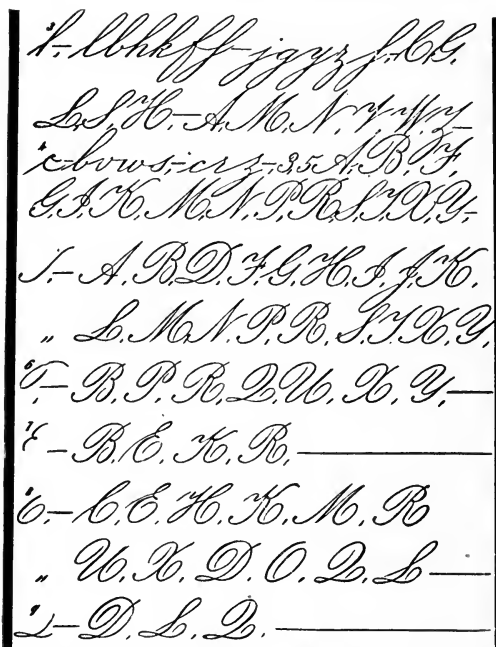 3 l- lbhkff- jgyyz f. C. G.
L. S. H.- A. M. N. V. W. Y-
4 c- bvws,- c r z- 2, 5 A. B. F.
G. I. K. M. N. P. R. S. T. X. Y-
- A. B. D. F. G. H. I. J. K.
„ L. M. N. P. R. S. T. X. Y.
6 - B. P. R. Q. U. X. Y.
7 - B. E. K. R.
8 - C. E. H. K. M. R
„ U. X. D. O. Q. L
9 - D. L. Q.